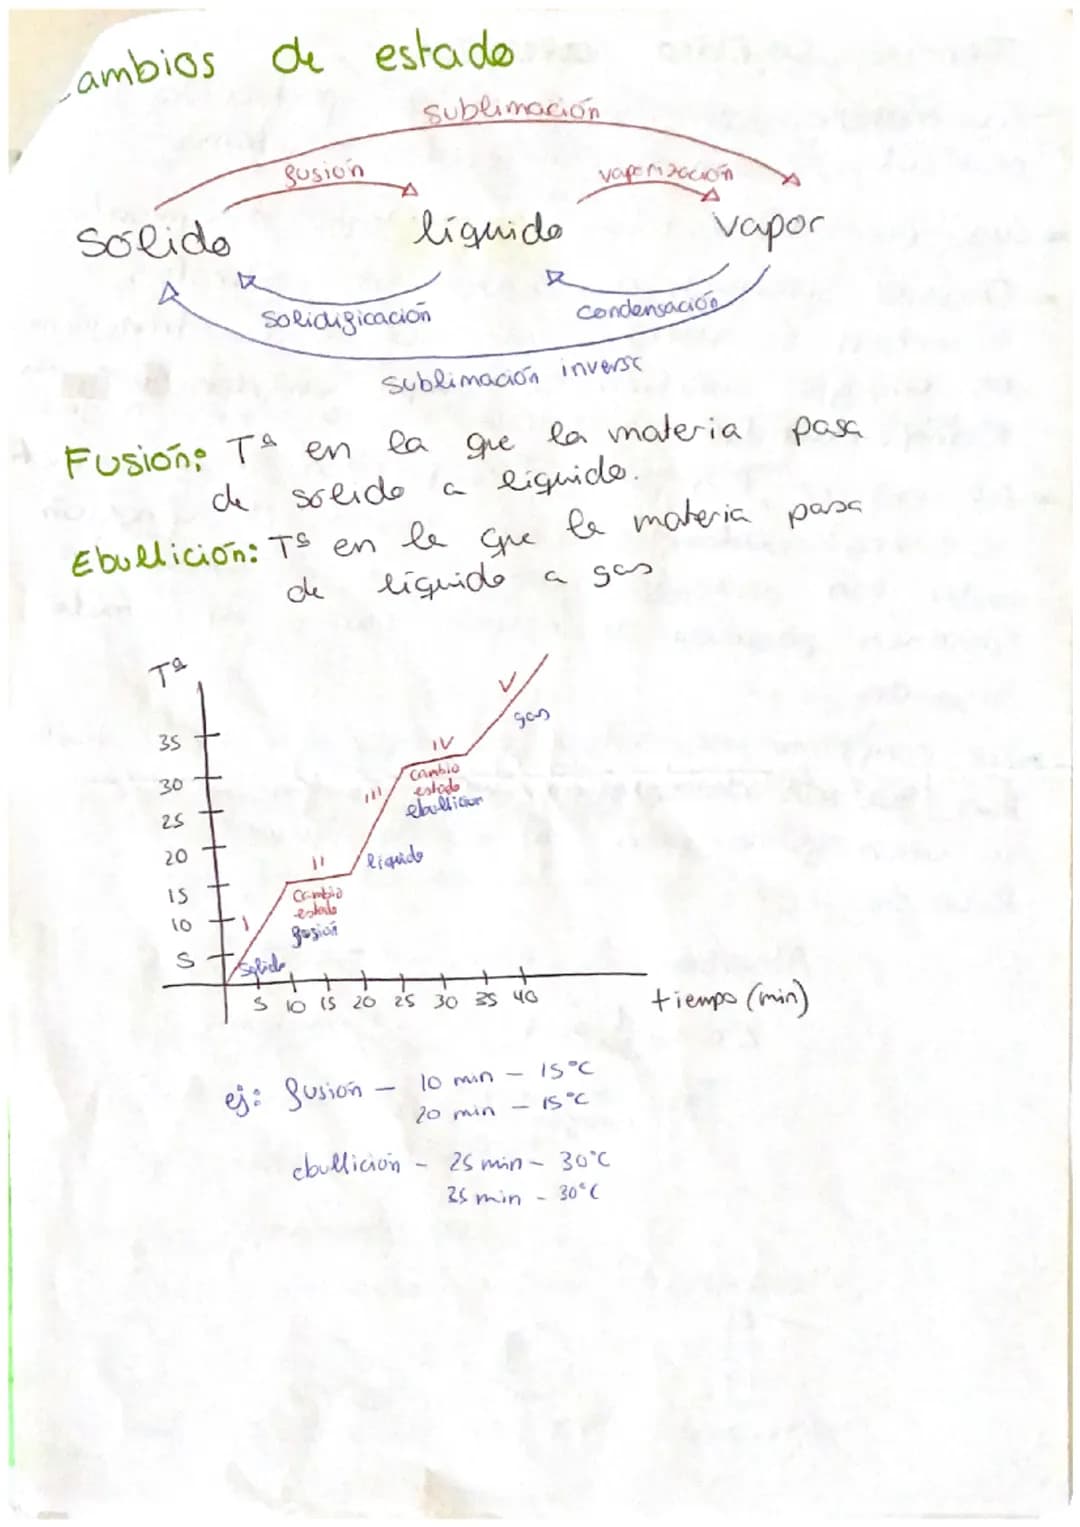 ambios de estado
sublimación
fusión
vaporización
sólido
líquido
vapor
solidificación
condensación
sublimación inversa
Fusión: Tª en la que la materia pasa
de sólido a líquido.
Ebullición: Tª en la que la materia pasa
de líquido a gas
Tª
35
30
25
20
15
10
5
I
Sólido
II
Cambio
estado
fusión
III
líquido
IV
Cambio
estado
ebullición
V
gas
5 10 15 20 25 30 35 40
tiempo (min)
ej: fusión - 10 min - 15°C
20 min - 15°C
ebullición - 25 min - 30°C
35 min - 30°C